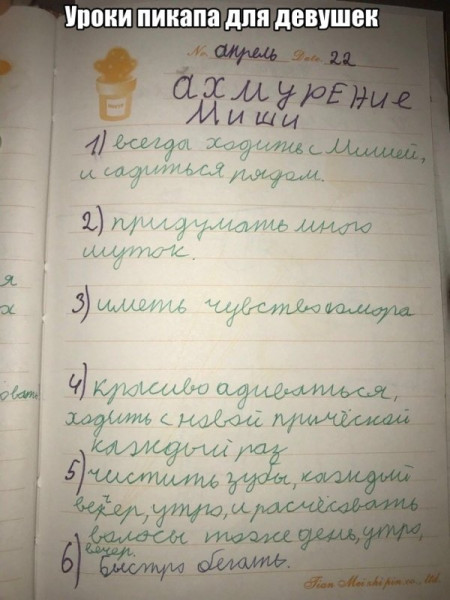 Уроки пикапа для девушек
No. апрель Date. 22
ахмурение
Миши
1) всегда ходить с Мишей,
и садиться рядом.
2) придумать много
шуток.
3) иметь чувство юмора
я
х
4) красиво адиваться,
ходить с новой причёской
каждый раз
5) чистить зубы, каждый
вечер, утро, и расчёсовать
волосы тоже день, утро,
вечер.
6) Быстро бегать.
Tian Mei zhi pin co., ltd.